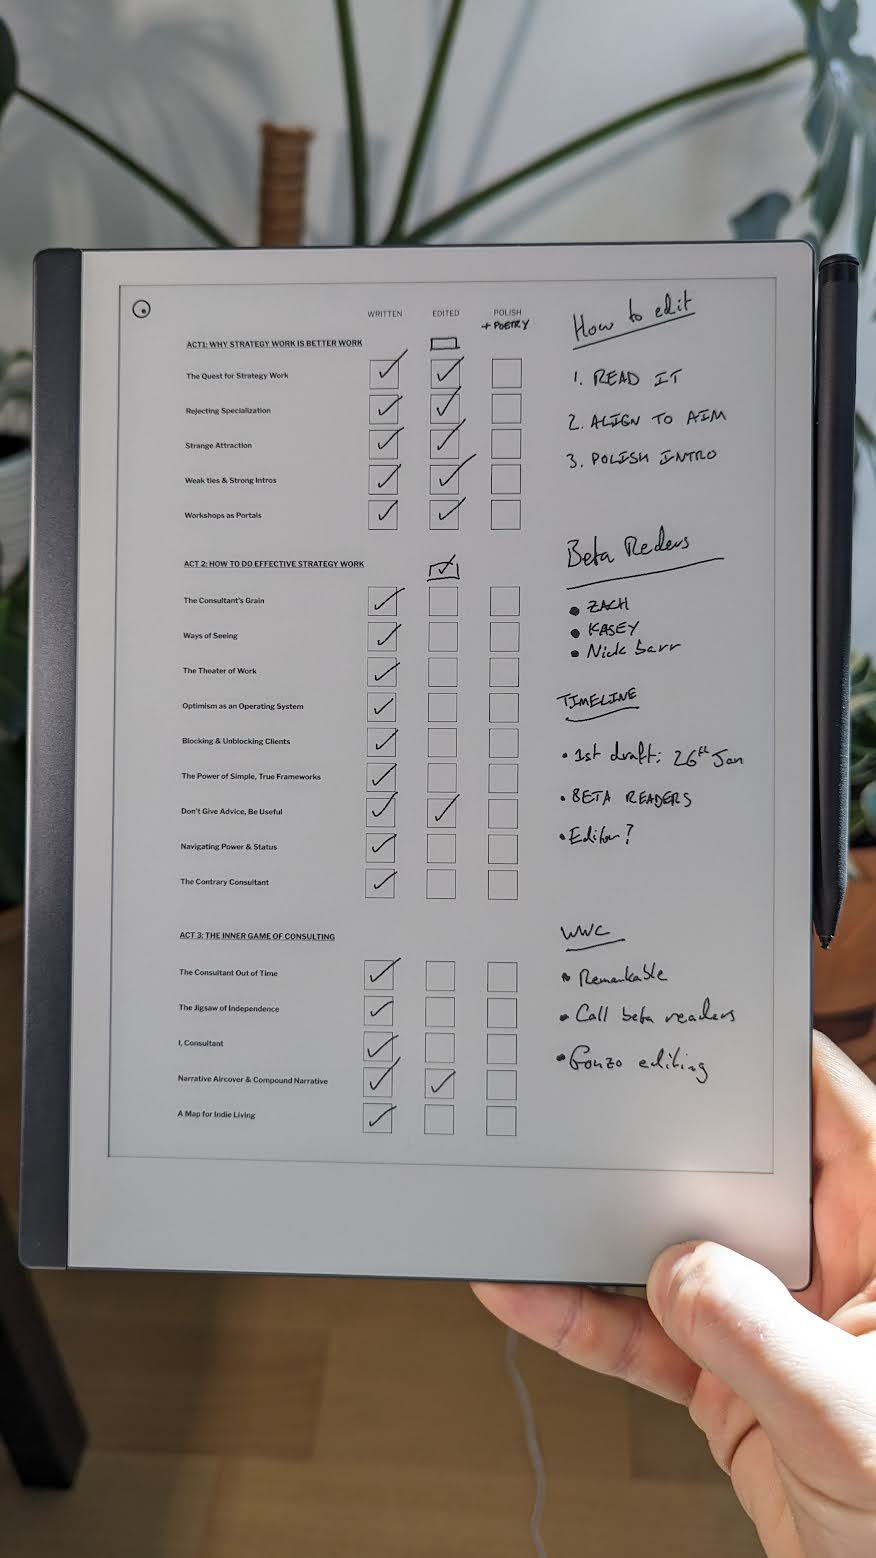 WRITTEN EDITED POLISH
+ POETRY
ACT1: WHY STRATEGY WORK IS BETTER WORK
The Quest for Strategy Work
Rejecting Specialization
Strange Attraction
Weak ties & Strong Intros
Workshops as Portals
ACT 2: HOW TO DO EFFECTIVE STRATEGY WORK
The Consultant's Grain
Ways of Seeing
The Theater of Work
Optimism as an Operating System
Blocking & Unblocking Clients
The Power of Simple, True Frameworks
Don't Give Advice, Be Useful
Navigating Power & Status
The Contrary Consultant
ACT 3: THE INNER GAME OF CONSULTING
The Consultant Out of Time
The Jigsaw of Independence
I, Consultant
Narrative Aircover & Compound Narrative
A Map for Indie Living
How to edit
1. READ IT
2. ALIGN TO AIM
3. POLISH INTRO
Beta Reders
• ZACH
• KASEY
• Nick barr
TIMELINE
• 1st draft: 26th Jan
• BETA READERS
• Editor?
WWC
• Remarkable
• Call beta readers
• Gonzo editing